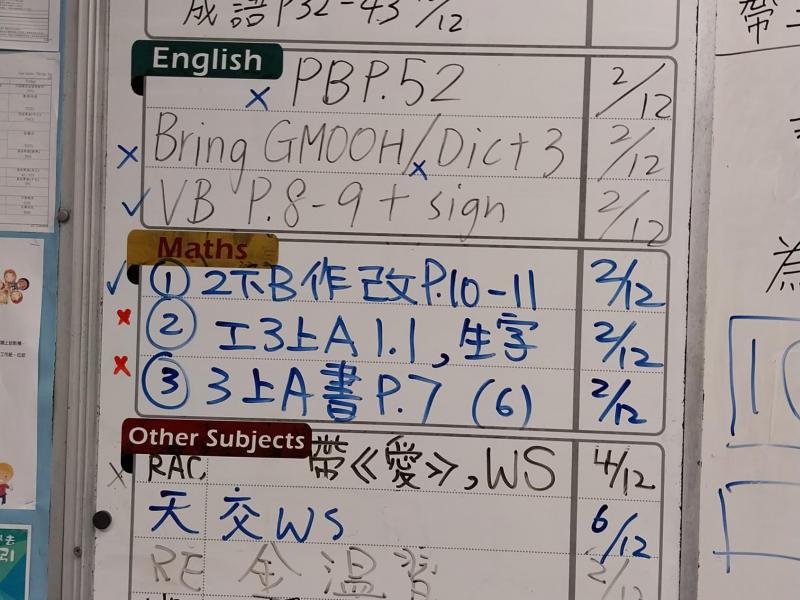 成語P32-43 /12
English
PBP.52 2/12
Bring GMOOH/Dict 3 2/12
VB P.8-9+sign 2/12
Maths
① 2下B作改P.10-11 2/12
② 工3上A1.1,生字 2/12
③ 3上A書P.7 (6) 2/12
Other Subjects
RAC 帶《愛》,WS 4/12
天 交WS 6/12
RE 全溫習 2/12
帶
為